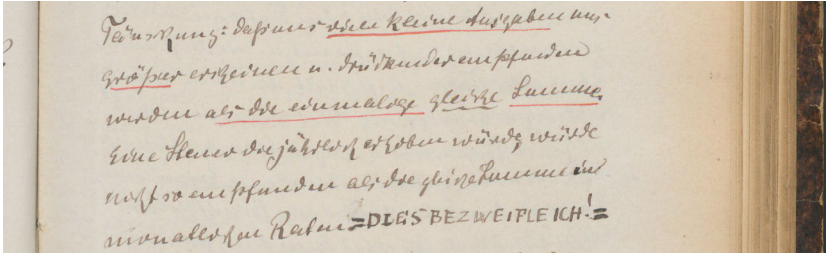 Täuschung: daß uns viele kleine Ausgaben nur
größer erscheinen u. drückender empfunden
werden als die einmalige gleiche Summe.
Eine Steuer die jährlich erhoben würde, würde
nicht so empfunden als die gleiche Summe in
monatlichen Raten =DIES BEZWEIFLE ICH!=